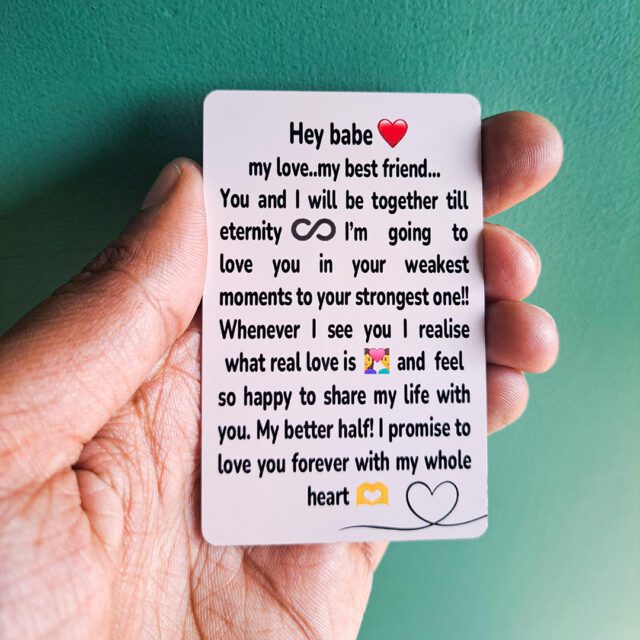 Hey babe ❤️
my love..my best friend...
You and I will be together till
eternity ∞ I'm going to
love you in your weakest
moments to your strongest one!!
Whenever I see you I realise
what real love is 👩‍❤️‍👨 and feel
so happy to share my life with
you. My better half! I promise to
love you forever with my whole
heart 🫶